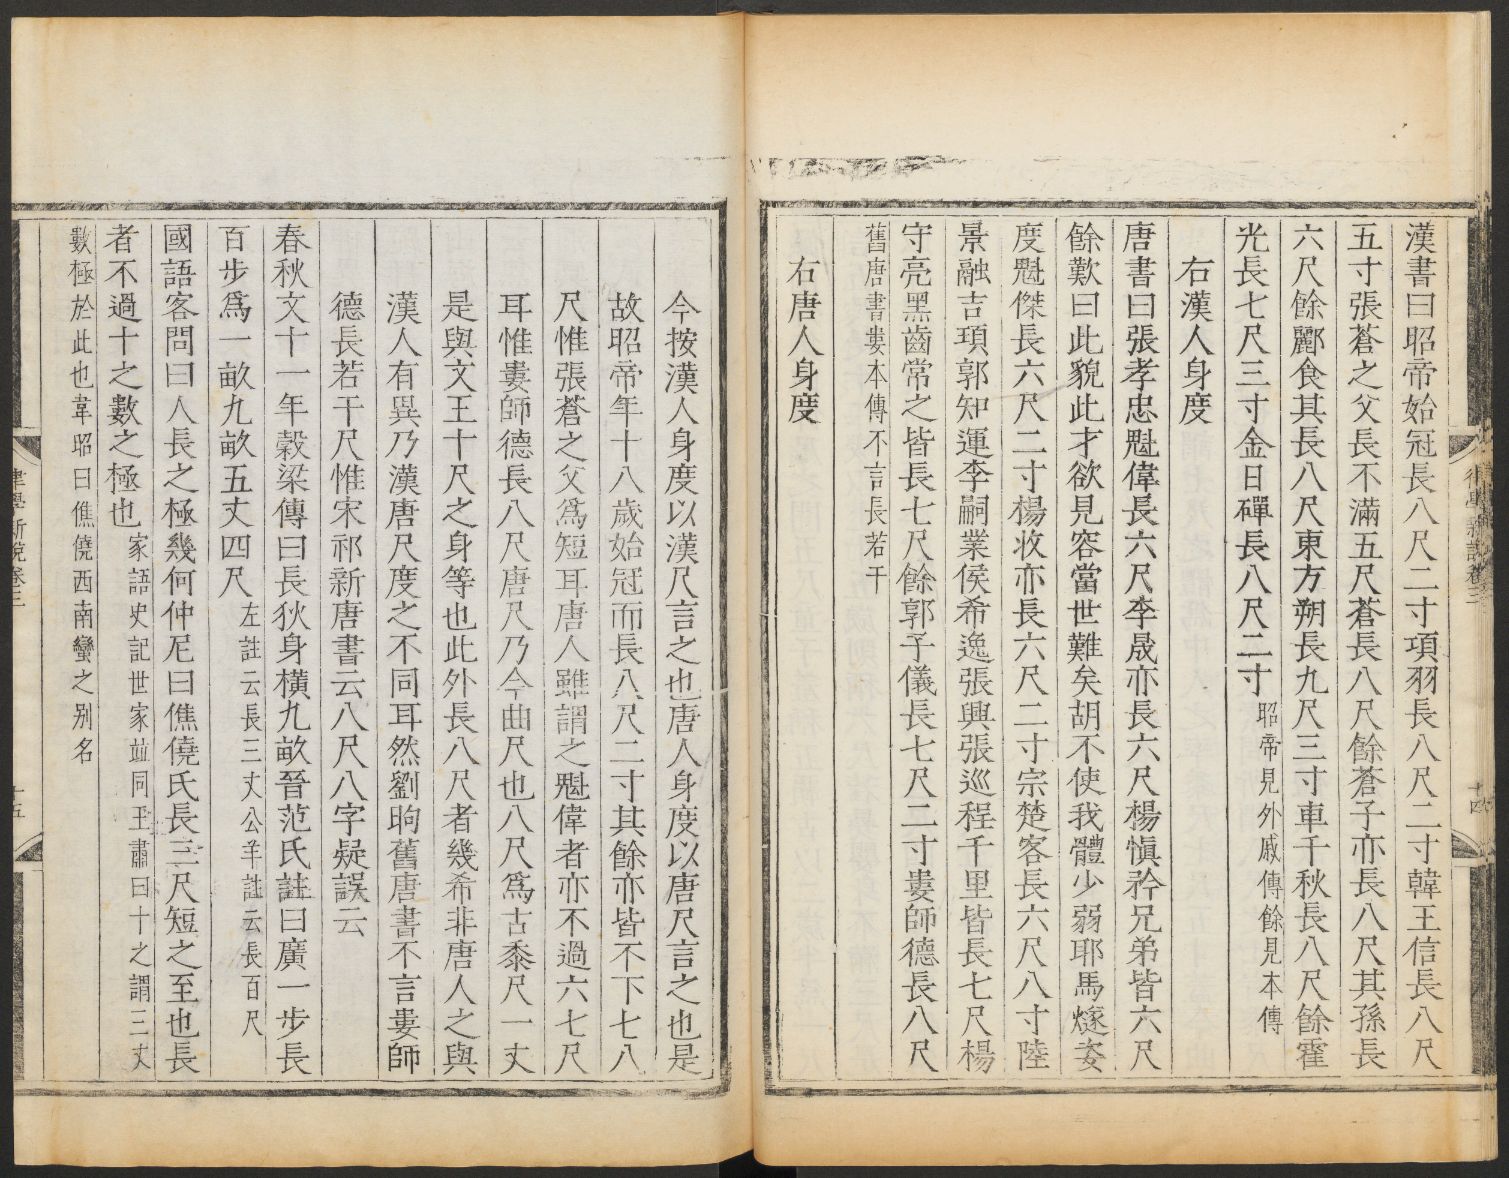 漢書曰昭帝始冠長八尺二寸項羽長八尺二寸韓王信長八尺
五寸張蒼之父長不滿五尺蒼長八尺餘蒼子亦長八尺其孫長
六尺餘酈食其長八尺東方朔長九尺三寸車千秋長八尺餘霍
光長七尺三寸金日磾長八尺二寸昭帝見外戚傳餘見本傳
右漢人身度
唐書曰張孝忠魁偉長六尺李晟亦長六尺楊愼矜兄弟皆六尺
餘歎曰此貌此才欲見容當世難矣胡不使我體少弱耶馬燧姿
度魁傑長六尺二寸楊收亦長六尺二寸宗楚客長六尺八寸陸
景融吉頊郭知運李嗣業侯希逸張興張巡程千里皆長七尺楊
守亮黑齒常之皆長七尺餘郭子儀長七尺二寸婁師德長八尺
舊唐書婁本傳不言長若干
右唐人身度
律學新說卷三
十四
今按漢人身度以漢尺言之也唐人身度以唐尺言之也是
故昭帝年十八歲始冠而長八尺二寸其餘亦皆不下七八
尺惟張蒼之父爲短耳唐人雖謂之魁偉者亦不過六七尺
耳惟婁師德長八尺唐尺乃今曲尺也八尺爲古黍尺一丈
是與文王十尺之身等也此外長八尺者幾希非唐人之與
漢人有異乃漢唐尺度之不同耳然劉昫舊唐書不言婁師
德長若干尺惟宋祁新唐書云八尺八字疑誤云
春秋文十一年穀梁傳曰長狄身橫九畝晉范氏註曰廣一步長
百步爲一畝九畝五丈四尺左註云長三丈公羊註云長百尺
國語客問曰人長之極幾何仲尼曰僬僥氏長三尺短之至也長
者不過十之數之極也家語史記世家竝同王肅曰十之謂三丈
數極於此也韋昭曰僬僥西南蠻之別名
律學新說卷三
十五